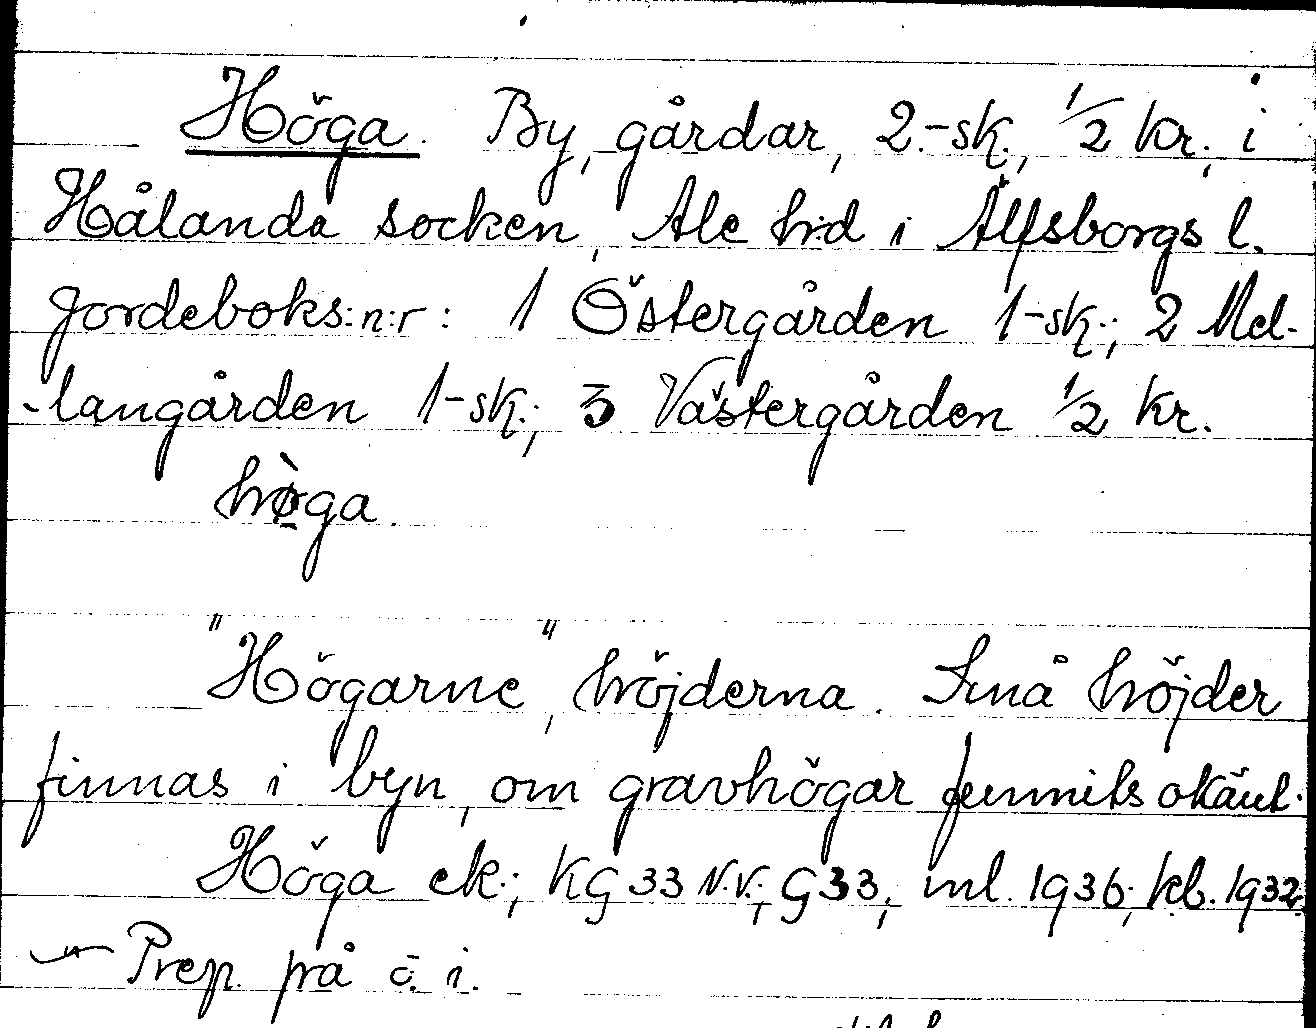 Höga. By, gårdar, 2.-sk., 1/2 kr., i
Hålanda socken, Ale h:d i Älfsborgs l.
Jordeboks:n:r: 1 Östergården 1-sk.; 2 Mel-
-langården 1-sk.; 3 Västergården 1/2 kr.
hø̀ga.
"Högarne", höjderna. Små höjder
finnas i byn, om gravhögar funnits okänt.
Höga ek.; KG 33 N.V.; G 33; ml. 1936; kb. 1932.
Prep. på o. i.